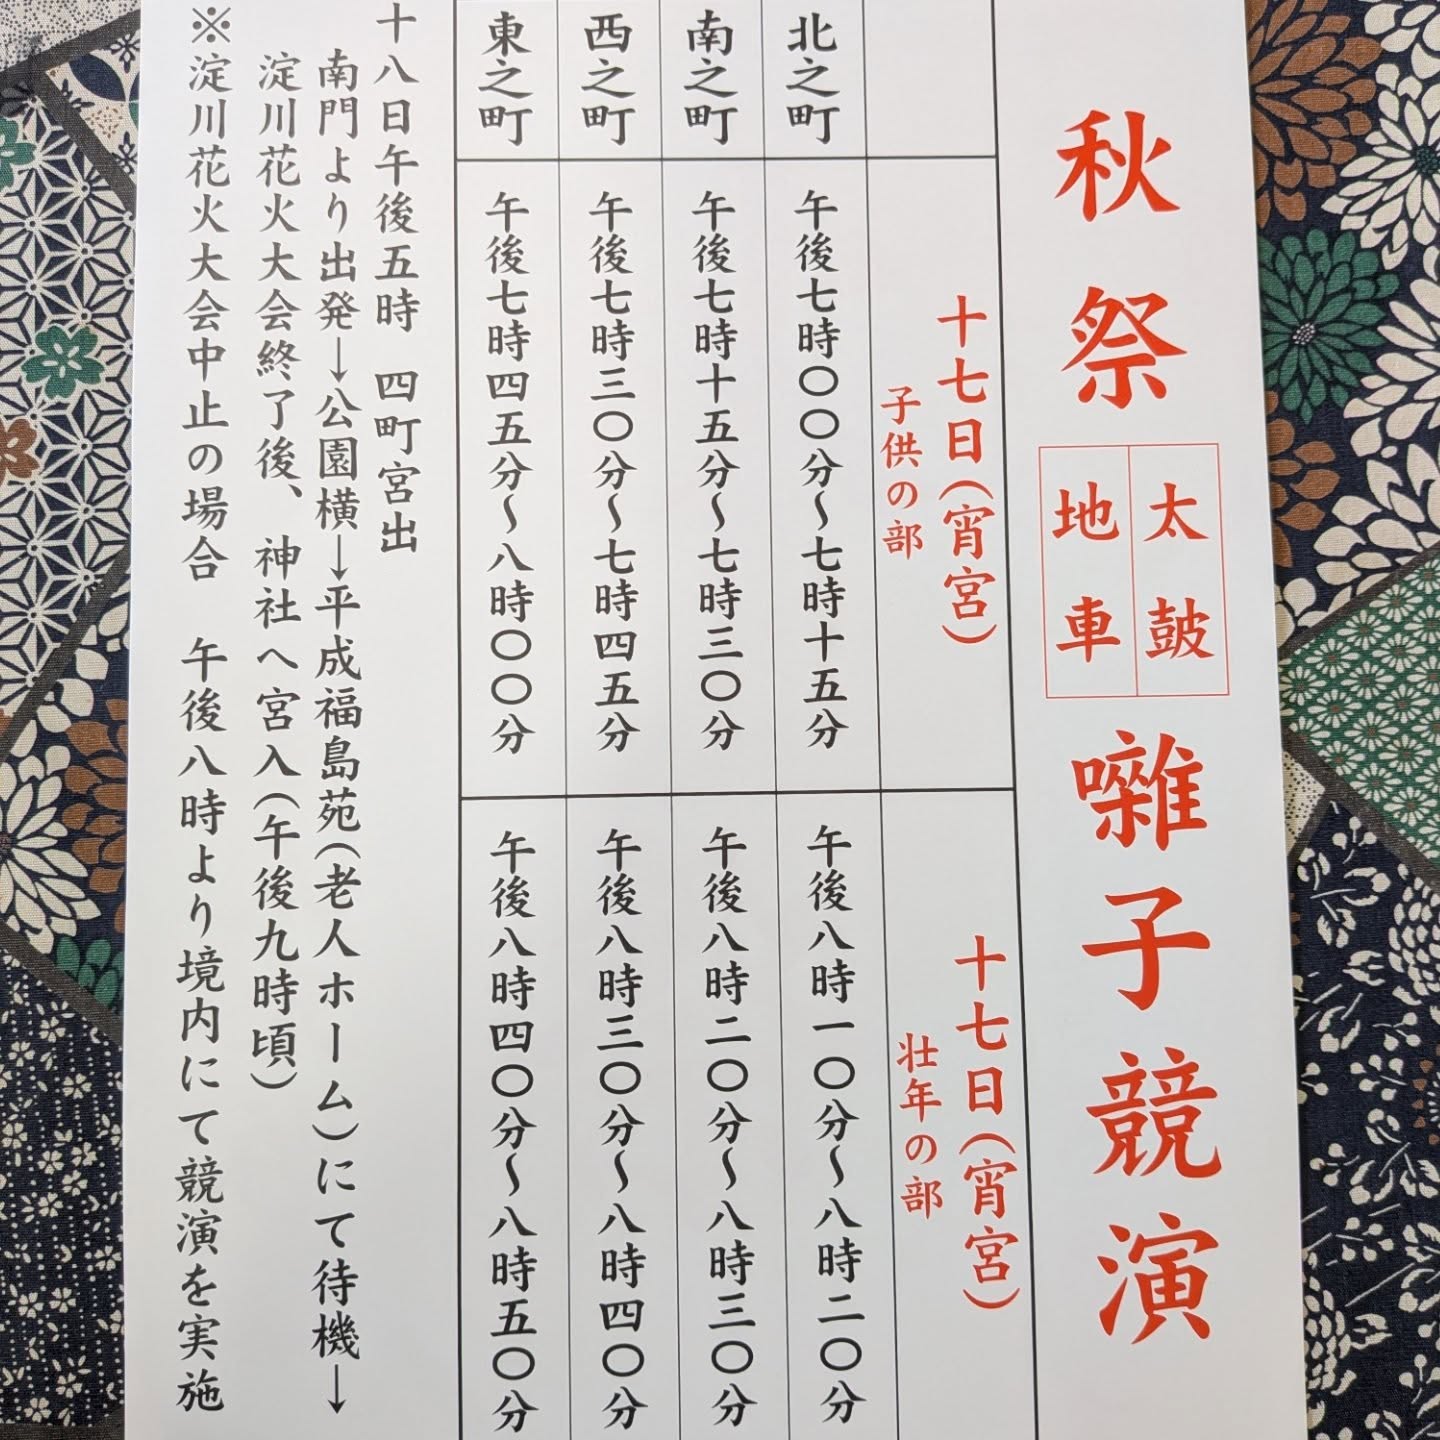 秋祭
太鼓
地車
囃子競演
十七日(宵宮)
子供の部
十七日(宵宮)
壮年の部
北之町
午後七時〇〇分〜七時十五分
午後八時一〇分〜八時二〇分
南之町
午後七時十五分〜七時三〇分
午後八時二〇分〜八時三〇分
西之町
午後七時三〇分〜七時四五分
午後八時三〇分〜八時四〇分
東之町
午後七時四五分〜八時〇〇分
午後八時四〇分〜八時五〇分
十八日午後五時 四町宮出
南門より出発→公園横→平成福島苑(老人ホーム)にて待機→
淀川花火大会終了後、神社へ宮入(午後九時頃)
※淀川花火大会中止の場合 午後八時より境内にて競演を実施